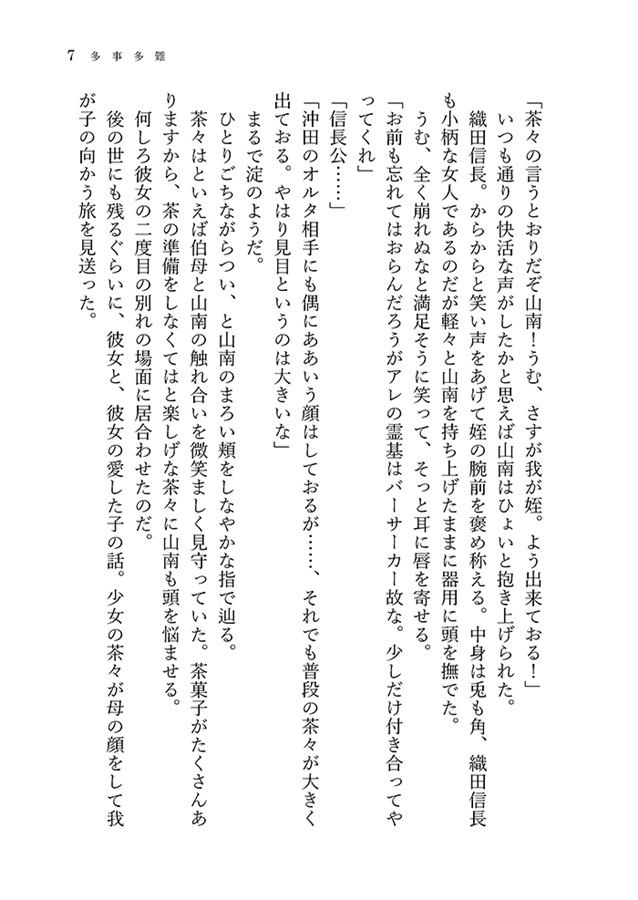 7 多事多難
「茶々の言うとおりだぞ山南！うむ、さすが我が姪。よう出来ておる！」
いつも通りの快活な声がしたかと思えば山南はひょいと抱き上げられた。
織田信長。からからと笑い声をあげて姪の腕前を褒め称える。中身は兎も角、織田信長
も小柄な女人であるのだが軽々と山南を持ち上げたままに器用に頭を撫でた。
うむ、全く崩れぬなと満足そうに笑って、そっと耳に唇を寄せる。
「お前も忘れてはおらんだろうがアレの霊基はバーサーカー故な。少しだけ付き合ってや
ってくれ」
「信長公……」
「沖田のオルタ相手にも偶にああいう顔はしておるが……、それでも普段の茶々が大きく
出ておる。やはり見目というのは大きいな」
まるで淀のようだ。
ひとりごちながらつい、と山南のまろい頬をしなやかな指で辿る。
茶々はといえば伯母と山南の触れ合いを微笑ましく見守っていた。茶菓子がたくさんあ
りますから、茶の準備をしなくてはと楽しげな茶々に山南も頭を悩ませる。
何しろ彼女の二度目の別れの場面に居合わせたのだ。
後の世にも残るぐらいに、彼女と、彼女の愛した子の話。少女の茶々が母の顔をして我
が子の向かう旅を見送った。